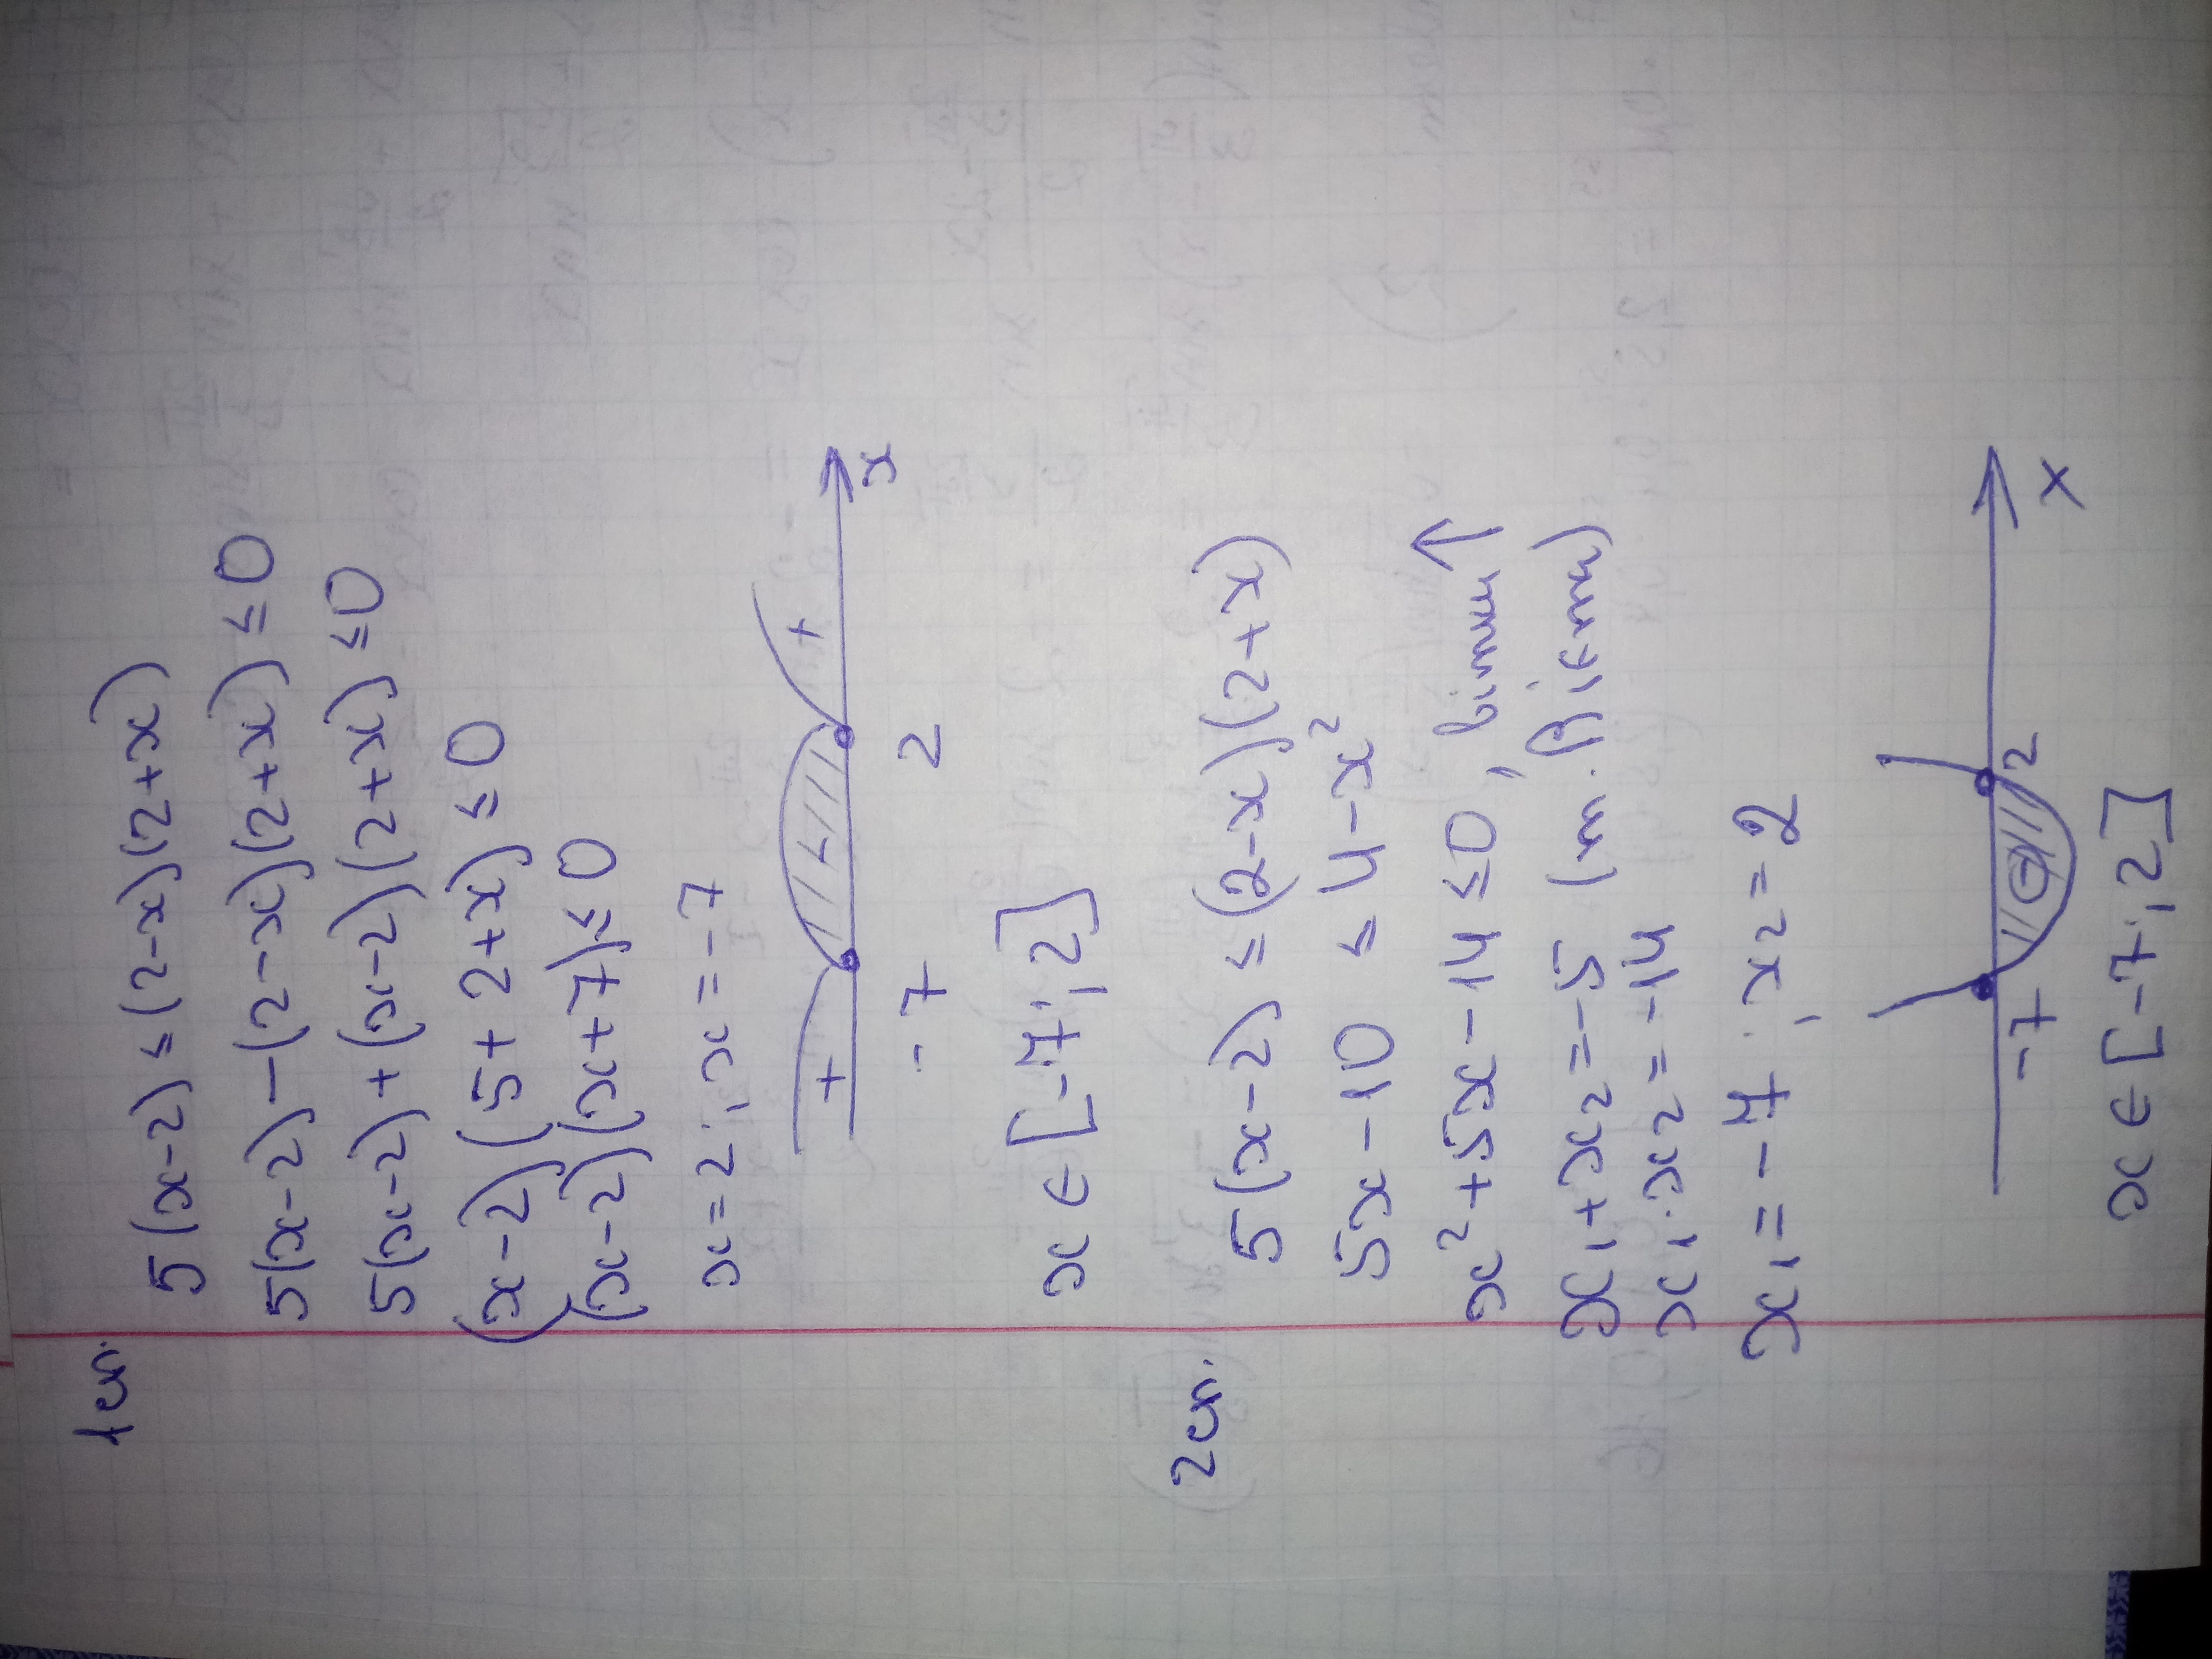 1 сп.
5(x-2)≤(2-x)(2+x)
5(x-2)-(2-x)(2+x)≤0
5(x-2)+(x-2)(2+x)≤0
(x-2)(5+2+x)≤0
(x-2)(x+7)≤0
x=2; x=-7
+ - + x
-7 2
x∈[-7;2]
2 сп.
5(x-2)≤(2-x)(2+x)
5x-10≤4-x²
x²+5x-14≤0, вітки↑
x₁+x₂=-5 (т. Вієта)
x₁·x₂=-14
x₁=-7; x₂=2
-7 - 2 x
x∈[-7;2]